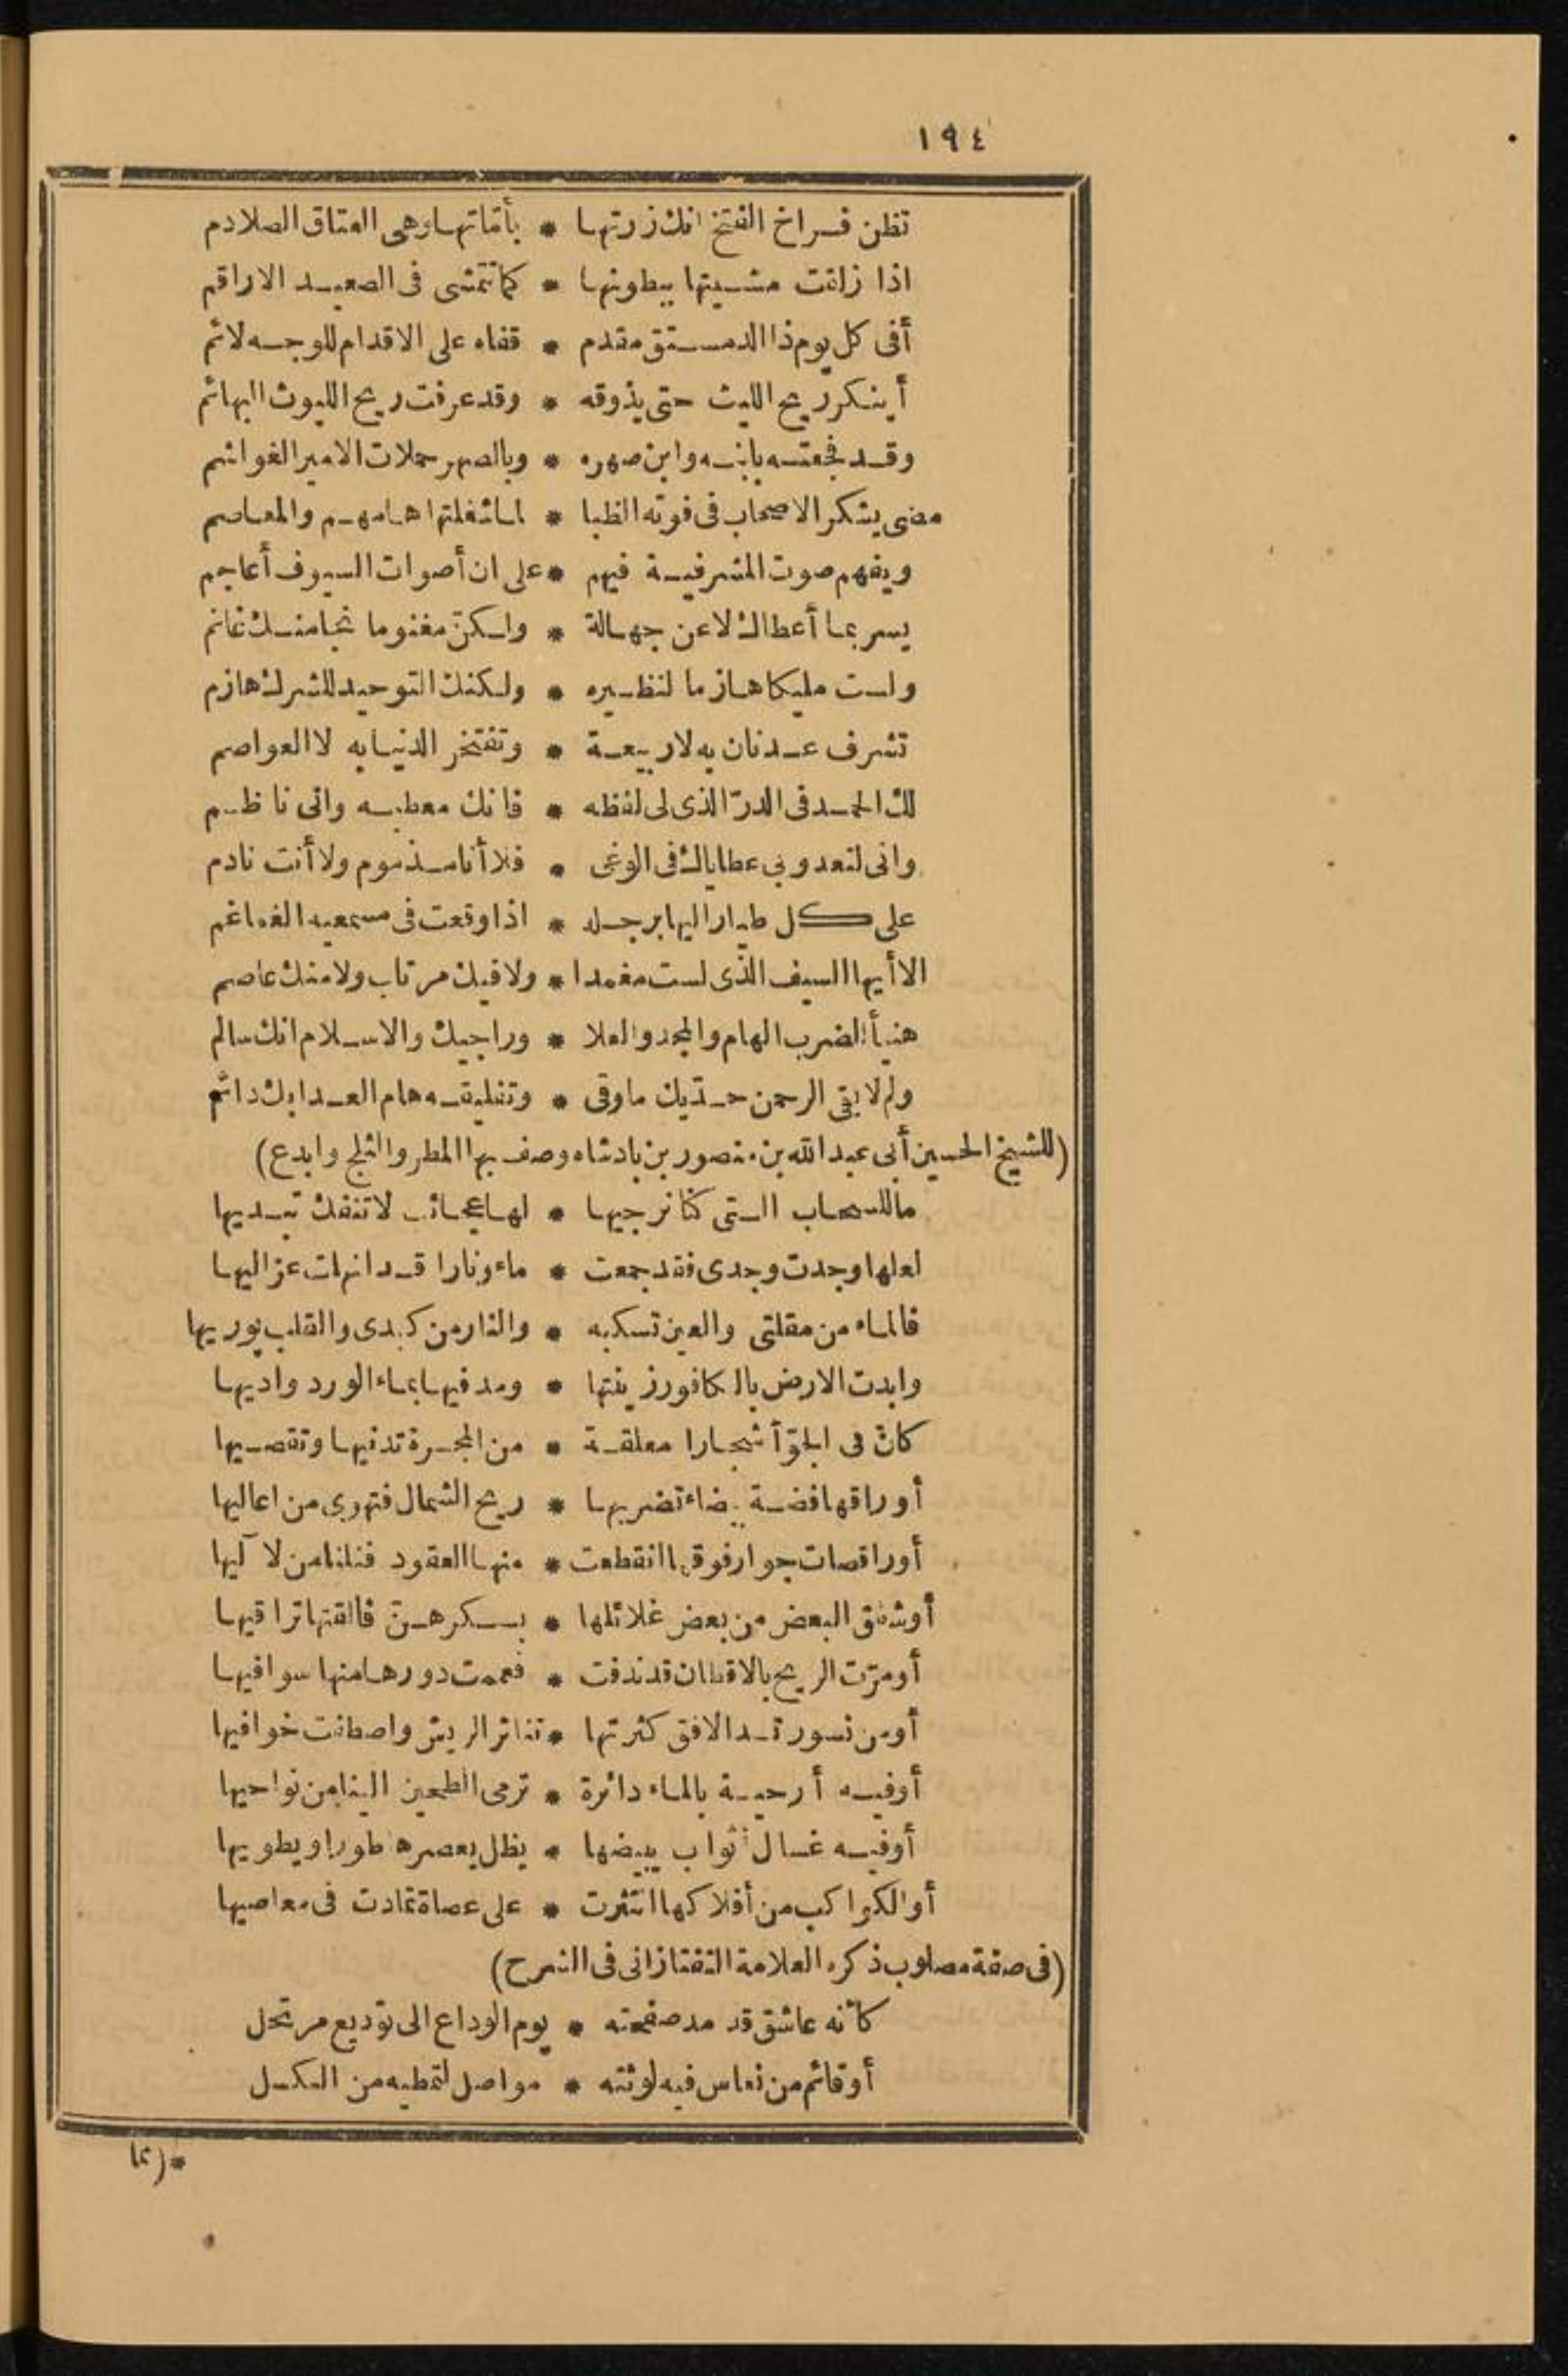 ١٩٤
تظن فراخ الفتخ انك زرتها * بأماتها وهى العتاق الصلادم
اذا زلقت مشيتها ببطونها * كما تتمشى فى الصعيد الاراقم
أفى كل يوم ذا الدمستق مقدم * قفاه على الاقدام للوجه لائم
أينكر ريح الليث حتى يذوقه * وقد عرفت ريح الليوث البهائم
وقد فجعته بابنه وابن صهره * وبالصهر حملات الامير الغواشم
مضى يشكر الاصحاب فى فوته الظبا * لما شغلتها هامهم والمعاصم
ويفهم صوت المشرفية فيهم * على ان أصوات السيوف أعاجم
يسر بما أعطاك لا عن جهالة * ولكن مغنوما نجا منك غانم
ولست مليكا هازما لنظيره * ولكنك التوحيد للشرك هازم
تشرف عدنان به لا ربيعة * وتفتخر الدنيا به لا العواصم
لك الحمد فى الدرّ الذى لى لفظه * فانك معطيه وانى ناظم
وانى لتعدو بى عطاياك فى الوغى * فلا أنا مذموم ولا أنت نادم
على كل طيار اليها برجله * اذا وقعت فى مسمعيه الغماغم
الا أيها السيف الذى لست مغمدا * ولا فيك مرتاب ولا منك عاصم
هنيأ لضرب الهام والمجد والعلا * وراجيك والاسلام انك سالم
ولم لا يقى الرحمن حدّيك ما وقى * وتفليقه هام العدا بك دائم
(للشيخ الحسين أبى عبد الله بن منصور بن بادشاه وصف بها المطر والثلج وابدع)
ما للسحاب التى كنا نرجيها * لها عجائب لا تنفك تبديها
لعلها وجدت وجدى فقد جمعت * ماء ونارا قد انهلت عزاليها
فالماء من مقلتى والعين تسكبه * والنار من كبدى والقلب يوريها
وابدت الارض بالكافور زينتها * ومد فيها بماء الورد واديها
كانّ فى الجوّ أشجارا معلقة * من المجرة تدنيها وتقصيها
أوراقها فضة بيضاء تضربها * ريح الشمال فتهوى من اعاليها
أو راقصات جوار فوقها انقطعت * منها العقود فنلنا من لآليها
أو شقق البعض من بعض غلائلها * بسكرهنّ فالقتها تراقيها
أو مرّت الريح بالاقطان قد ندفت * فعممت دورها منها سوافيها
أو من نسور تسد الافق كثرتها * تناثر الريش واصطفت خوافيها
أو فيه أرحية بالماء دائرة * ترمى الطحين الينا من نواحيها
أو فيه غسال أثواب يبيضها * يظل يعصرها طورا ويطويها
أو الكواكب من أفلاكها انتثرت * على عصاة تمادت فى معاصيها
(فى صفة مصلوب ذكره العلامة التفتازانى فى الشرح)
كأنه عاشق قد مد صفحته * يوم الوداع الى توديع مرتحل
أو قائم من نعاس فيه لوثته * مواصل لتمطيه من الكسل
*(مما